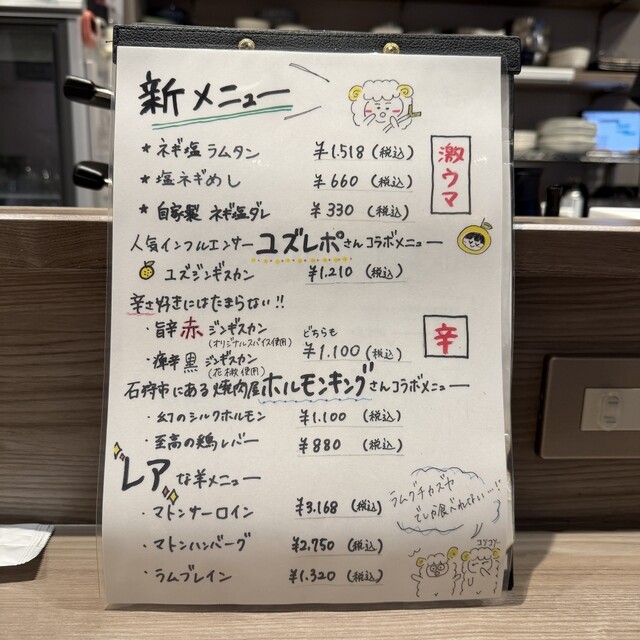 新メニュー
★ ネギ塩 ラムタン ¥1.518 (税込)
★ 塩ネギめし ¥660 (税込)
★ 自家製 ネギ塩ダレ ¥330 (税込)
激ウマ
人気インフルエンサー ユズレポさんコラボメニュー
ユズジンギスカン ¥1.210 (税込)
辛さ好きにはたまらない!!
・旨辛 赤 ジンギスカン
(オリジナルスパイス使用)
・痺辛 黒 ジンギスカン
(花椒使用)
どちらも
¥1.100 (税込)
辛
石狩市にある焼肉屋ホルモンキングさんコラボメニュー
・幻のシルクホルモン ¥1.100 (税込)
・至高の鶏レバー ¥880 (税込)
レアな羊メニュー
・マトンサーロイン ¥3.168 (税込)
・マトンハンバーグ ¥2.750 (税込)
・ラムブレイン ¥1.320 (税込)
ラムグチカズヤ
でしか食べれない…!
コソコソ